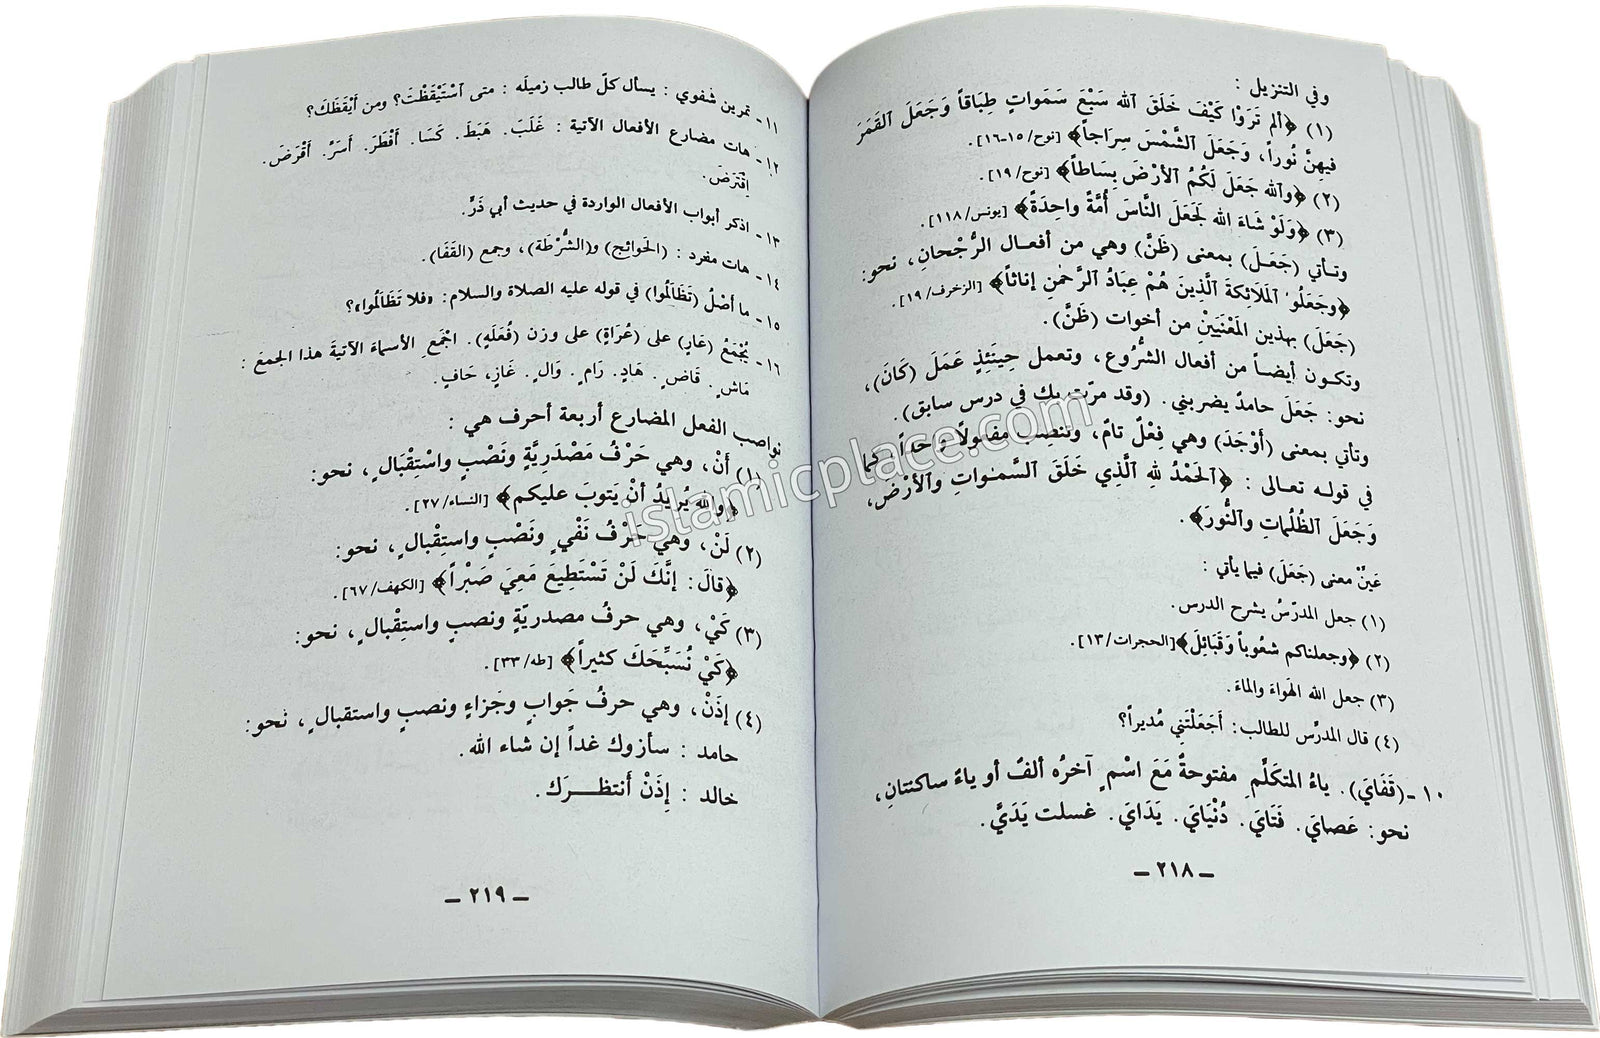 وفي التنزيل :
(١) ﴿ألم تَرَوْا كَيْفَ خَلَقَ ٱلله سَبْعَ سَمَواتٍ طِبَاقاً وَجَعَلَ ٱلقَمَرَ
فيهِنَّ نُوراً، وَجَعَلَ ٱلشَّمْسَ سِرَاجاً﴾ [نوح/١٥-١٦].
(٢) ﴿وٱلله جَعَلَ لَكُمُ ٱلأرْضَ بِسَاطاً﴾ [نوح/١٩].
(٣) ﴿وَلَوْ شَاءَ الله لَجَعَلَ النَّاسَ أُمَّةً واحِدَةً﴾ [يونس/١١٨].
وتـأتي (جَعَـلَ) بمعنى (ظَنَّ) وهي من أفعـال الرُّجْحانِ، نحو:
﴿وجَعَلُو' ٱلمَلَائِكةَ ٱلَّذِينَ هُمْ عِبَادُ ٱلرَّحْمٰنِ إناثاً﴾ [الزخرف/١٩].
(جَعَلَ) بهذين المَعْنَيَيْنِ من أخوات (ظَنَّ).
وتكـون أيضـاً من أفعال الشُّرُوع، وتعمل حِينَئِذٍ عَمَلَ (كَانَ)،
نحو: جَعَلَ حامدٌ يضربني. (وقد مرّت بك في درس سابق).
وتأتي بمعنى (أَوْجَدَ) وهي فِعْلٌ تامٌ، وتنصب مفعولاً واحداً، كما
في قولـه تعـالى : ﴿ٱلحَمْدُ للهِ ٱلَّذِي خَلَقَ ٱلسَّمٰوَاتِ وٱلأرْضَ،
وَجَعَلَ ٱلظُلُماتِ وٱلنُّورَ﴾.
عَيِّنْ معنى (جَعَلَ) فيما يأتي :
(١) جعل المدرّسُ يشرح الدرس.
(٢) ﴿وجعلناكم شعُوباً وَقَبَائِلَ﴾[الحجرات/١٣].
(٣) جعل الله الهَواءَ والماءَ.
(٤) قال المدرِّس للطالب: أَجَعَلْتَنِي مُديراً؟
١٠-(قَفَايَ). ياءُ المتكَلِّمِ مفتوحةٌ مَعَ اسْمٍ آخرُه ألفٌ أو ياءٌ ساكنتانِ،
نحو: عَصايَ. فَتَايَ. دُنْيَايَ. يَدَايَ. غسلت يَدَيَّ.
– ٢١٨ –
١١- تمرين شفوي : يسأل كلّ طالب زميلَه : متى ٱسْتَيْقَظْتَ؟ ومن أَيْقَظَكَ؟
١٢- هات مضارع الأفعال الآتية : غَلَبَ. هَبَطَ. كَسَا. أَفْطَرَ. أسَرَّ. أَقْرَضَ.
اِقْتَرَضَ.
١٣- اذكر أبواب الأفعال الواردة في حديث أبي ذَرٍّ.
١٤- هات مفرد : (الحَوائِج) و(الشُّرْطَة)، وجمع (القَفَا).
١٥- ما أصْلُ (تَظَالَمُوا) في قوله عليه الصلاة والسلام: «فلا تَظَالَمُوا»؟
١٦- يُجْمَعُ (عَارٍ) على (عُرَاةٍ) على وزن (فُعَلَةٍ). اجْمَعِ الأسماءَ الآتيةَ هذا الجمعَ :
مَاشٍ. قَاضٍ. هَادٍ. رَامٍ. وَالٍ. غَازٍ، حَافٍ.
نواصب الفعل المضارع أربعة أحرف هي :
(١) أَنْ، وهي حَرْفُ مَصْدَرِيَّةٍ ونَصْبٍ واسْتِقْبَالٍ، نحو:
﴿وٱلله يُريدُ أنْ يَتوبَ عليكم﴾ [النساء/٢٧].
(٢) لَنْ، وهي حَرْفُ نَفْيٍ ونَصْبٍ واستِقْبالٍ، نحو:
﴿قالَ: إنَّكَ لَنْ تَسْتَطِيعَ مَعِيَ صَبْراً﴾ [الكهف/٦٧].
(٣) كَيْ، وهي حرفُ مصدريّةٍ ونصبٍ واستِقْبالٍ، نحو:
﴿كَيْ نُسَبِّحَكَ كثيراً﴾ [طه/٣٣].
(٤) إذَنْ، وهي حرفُ جَوابٍ وجَزاءٍ ونصبٍ واستقبالٍ، نحو:
حامد : سأزوك غداً إن شاء الله.
خالد : إذَنْ أَنتظـــرَك.
– ٢١٩ –
islamicplace.com